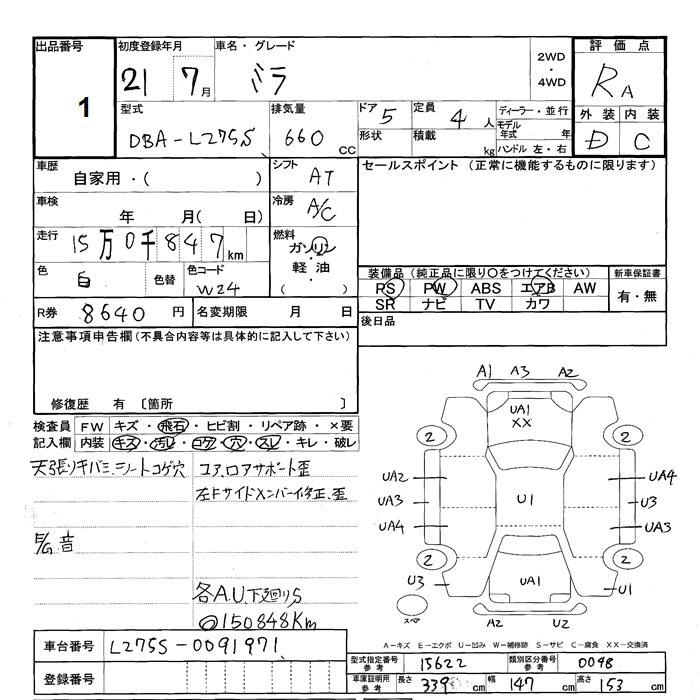 出品番号 初度登録年月 車名・グレード 2WD ・ 4WD 評価点
1 21 7月 ミラ RA
型式 排気量 ドア 5 定員 4人 ディーラー・並行 外装 内装
DBA-L275S 660 CC 形状 積載 kg モデル年式 年 ハンドル 左・右 D C
車歴 シフト セールスポイント (正常に機能するものに限ります)
自家用・( ) AT
車検 冷房
年 月( 日) A/C
走行 15万0千847km 燃料 ガソリン
・
軽油
( )
色 白 色替 色コード W24
装備品 (純正品に限り○をつけてください) 新車保証書
PS PW ABS エアB AW 有・無
SR ナビ TV カワ
R券 8640円 名変期限 月 日 後日品
注意事項申告欄 (不具合内容等は具体的に記入して下さい)
修復歴 有 〔箇所 〕
検査員 FW キズ・飛石・ヒビ割・リペア跡・×要
記入欄 内装 キズ・汚レ・コゲ・穴・スレ・キレ・破レ
天張りキバミ、シートコゲ穴 コア、ロアサポート歪
左Fサイドメンバー修正、歪
E/G音
各A.U、下廻りS
◎150848Km
A1 A3 A2
UA1
XX
2 2
UA2 UA4
UA3 U1 U3
UA4 UA3
2 2
U3 UA1 U1
スペア A2 U2
A-キズ E-エクボ U-凹み W-補修跡 S-サビ C-腐食 XX-交換済
車台番号 L275S-0091971
型式指定番号 参考 15622 類別区分番号 参考 0098
登録番号
車庫証明用 参考 長さ 339cm 幅 147cm 高さ 153cm